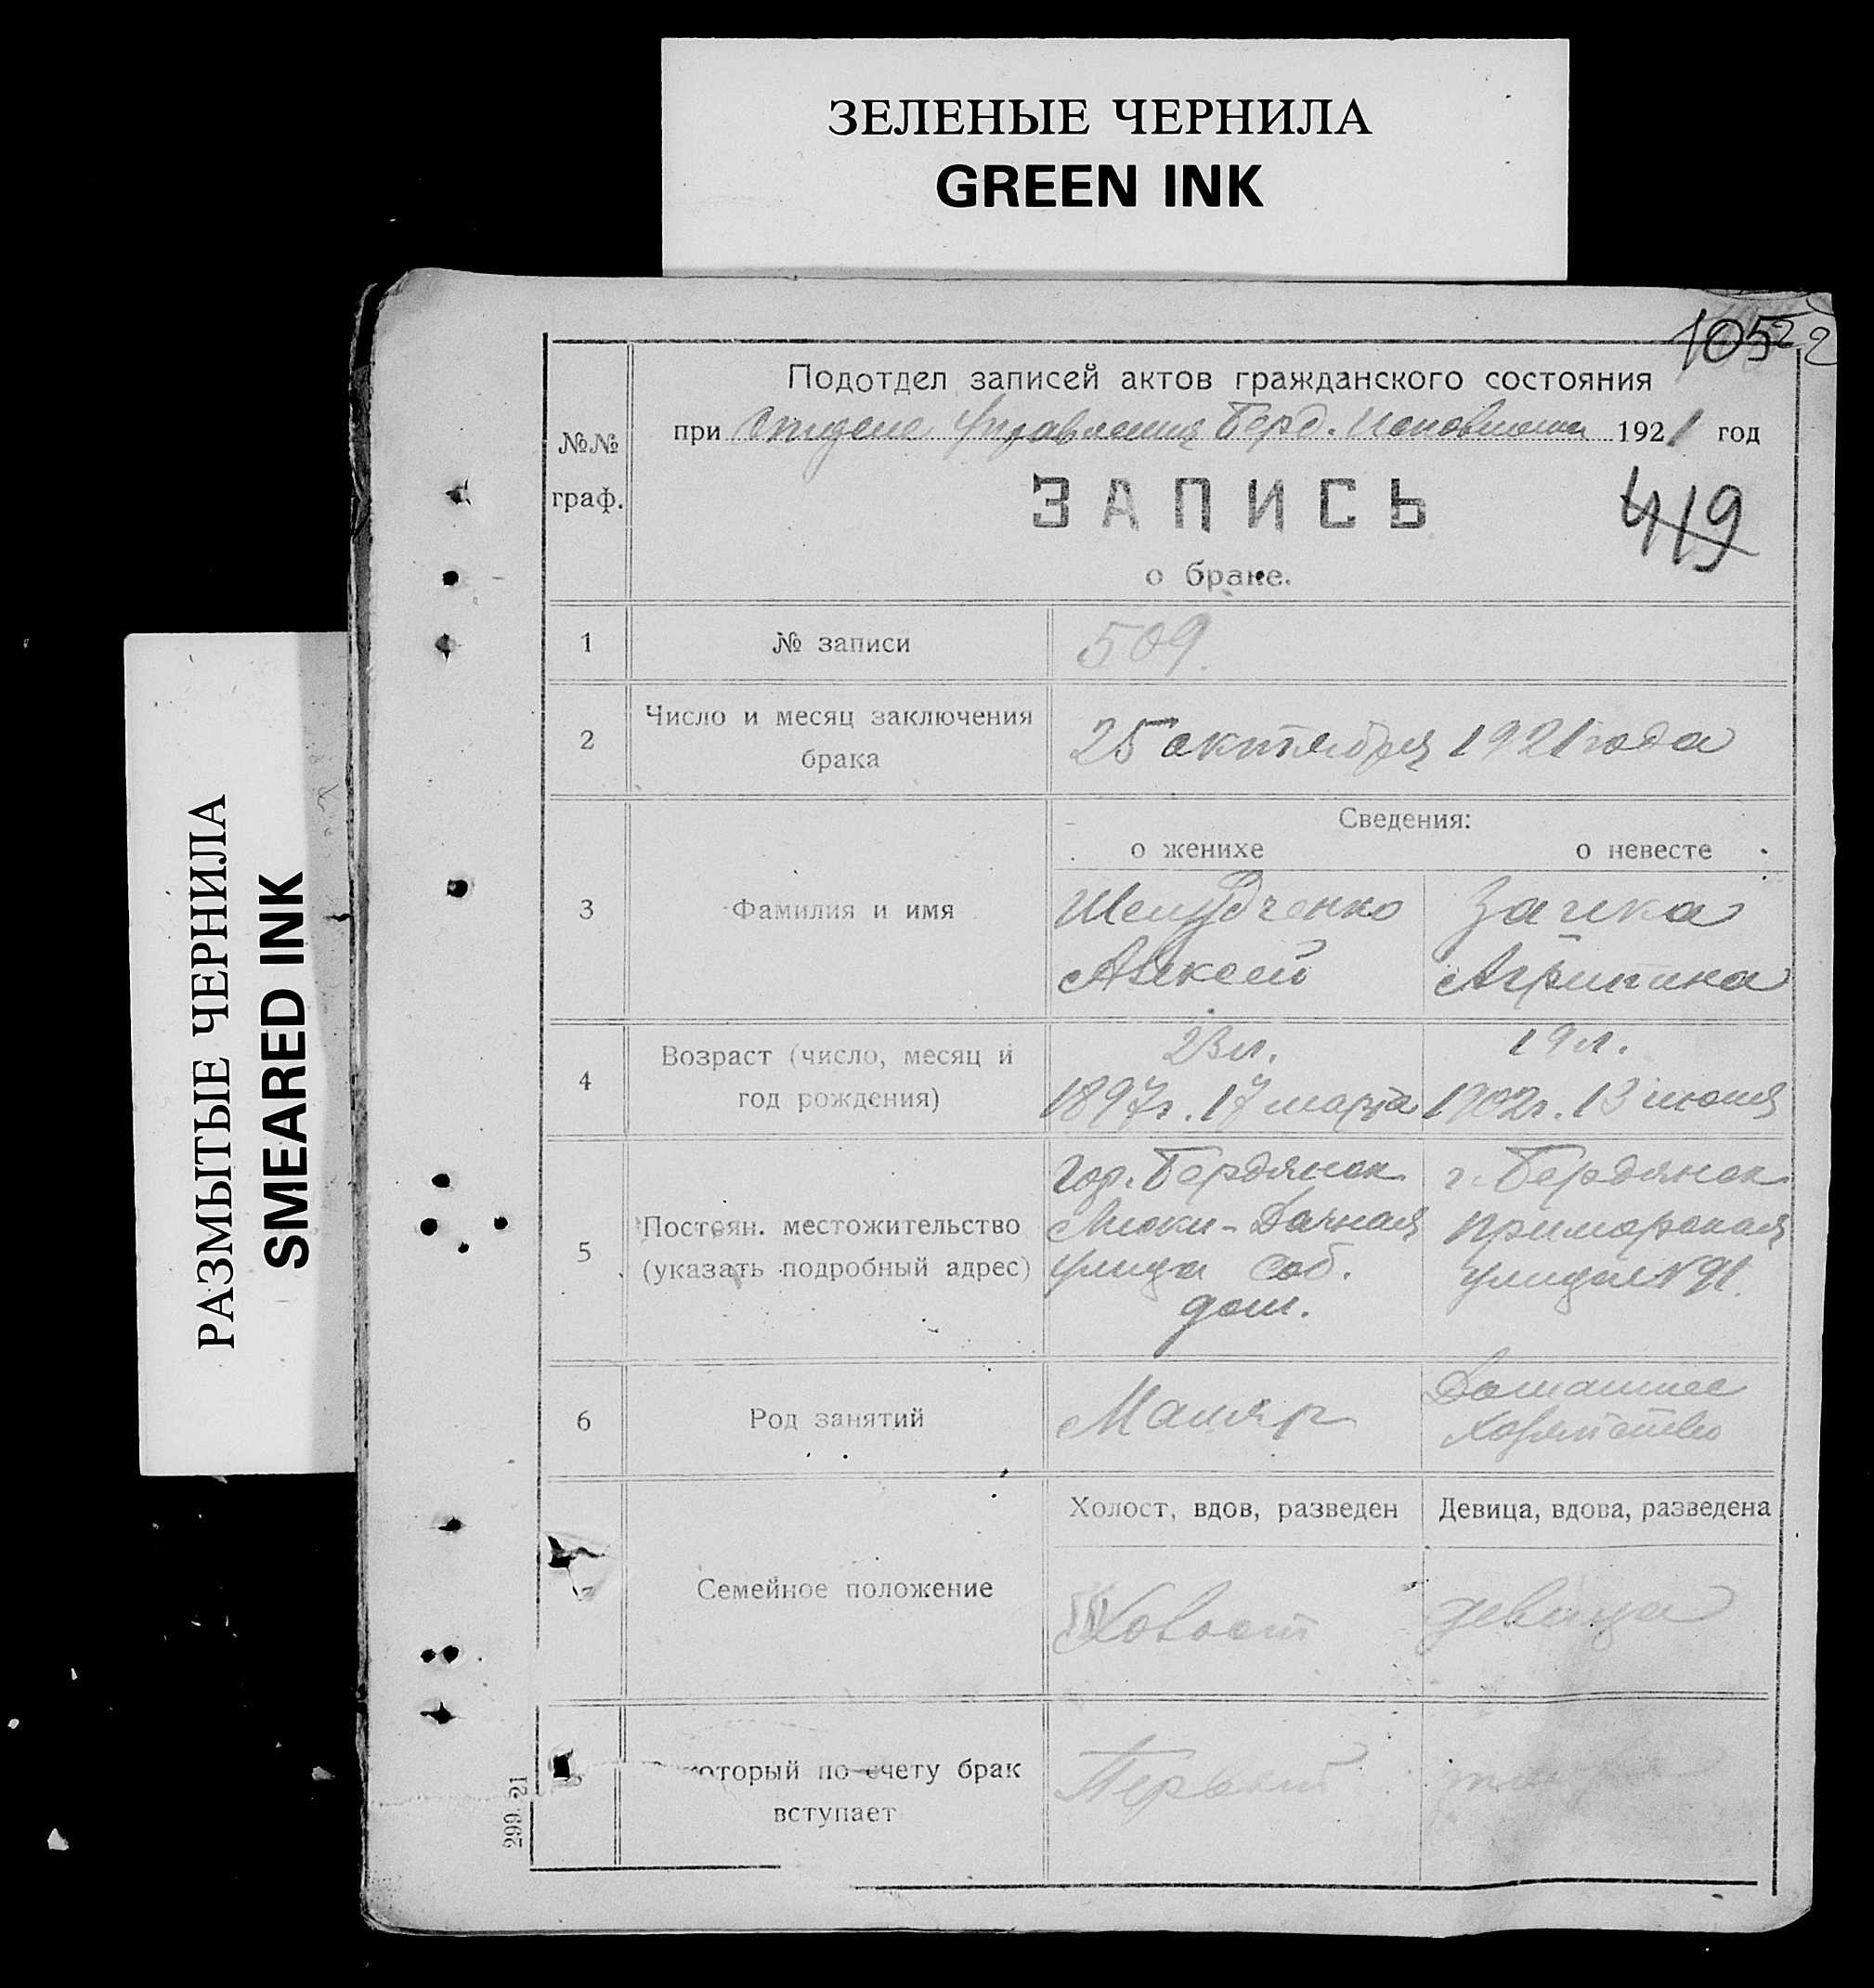 ЗЕЛЕНЫЕ ЧЕРНИЛА
GREEN INK
РАЗМЫТЫЕ ЧЕРНИЛА
SMEARED INK
105
Подотдел записей актов гражданского состояния
при Отделе Управления Берд. 1921 год
№№
граф.
ЗАПИСЬ
419
о браке.
1 № записи 509.
2 Число и месяц заключения
брака
25 октября 1921 года
Сведения:
о женихе о невесте
3 Фамилия и имя
Алексей Агрипина
4 Возраст (число, месяц и
год рождения)
23 л. 19 л.
1897г. 17 марта 1902г. 13 июня
5 Постоян. местожительство
(указать подробный адрес)
Гор. Бердянск г. Бердянск
Дачная Приморская
улица Соб. улица № 91.
дом.
6 Род занятий
Маляр Домашнее
хозяйство
Холост, вдов, разведен Девица, вдова, разведена
Семейное положение
Холост девица
который по счету брак
вступает
Первый
299 21